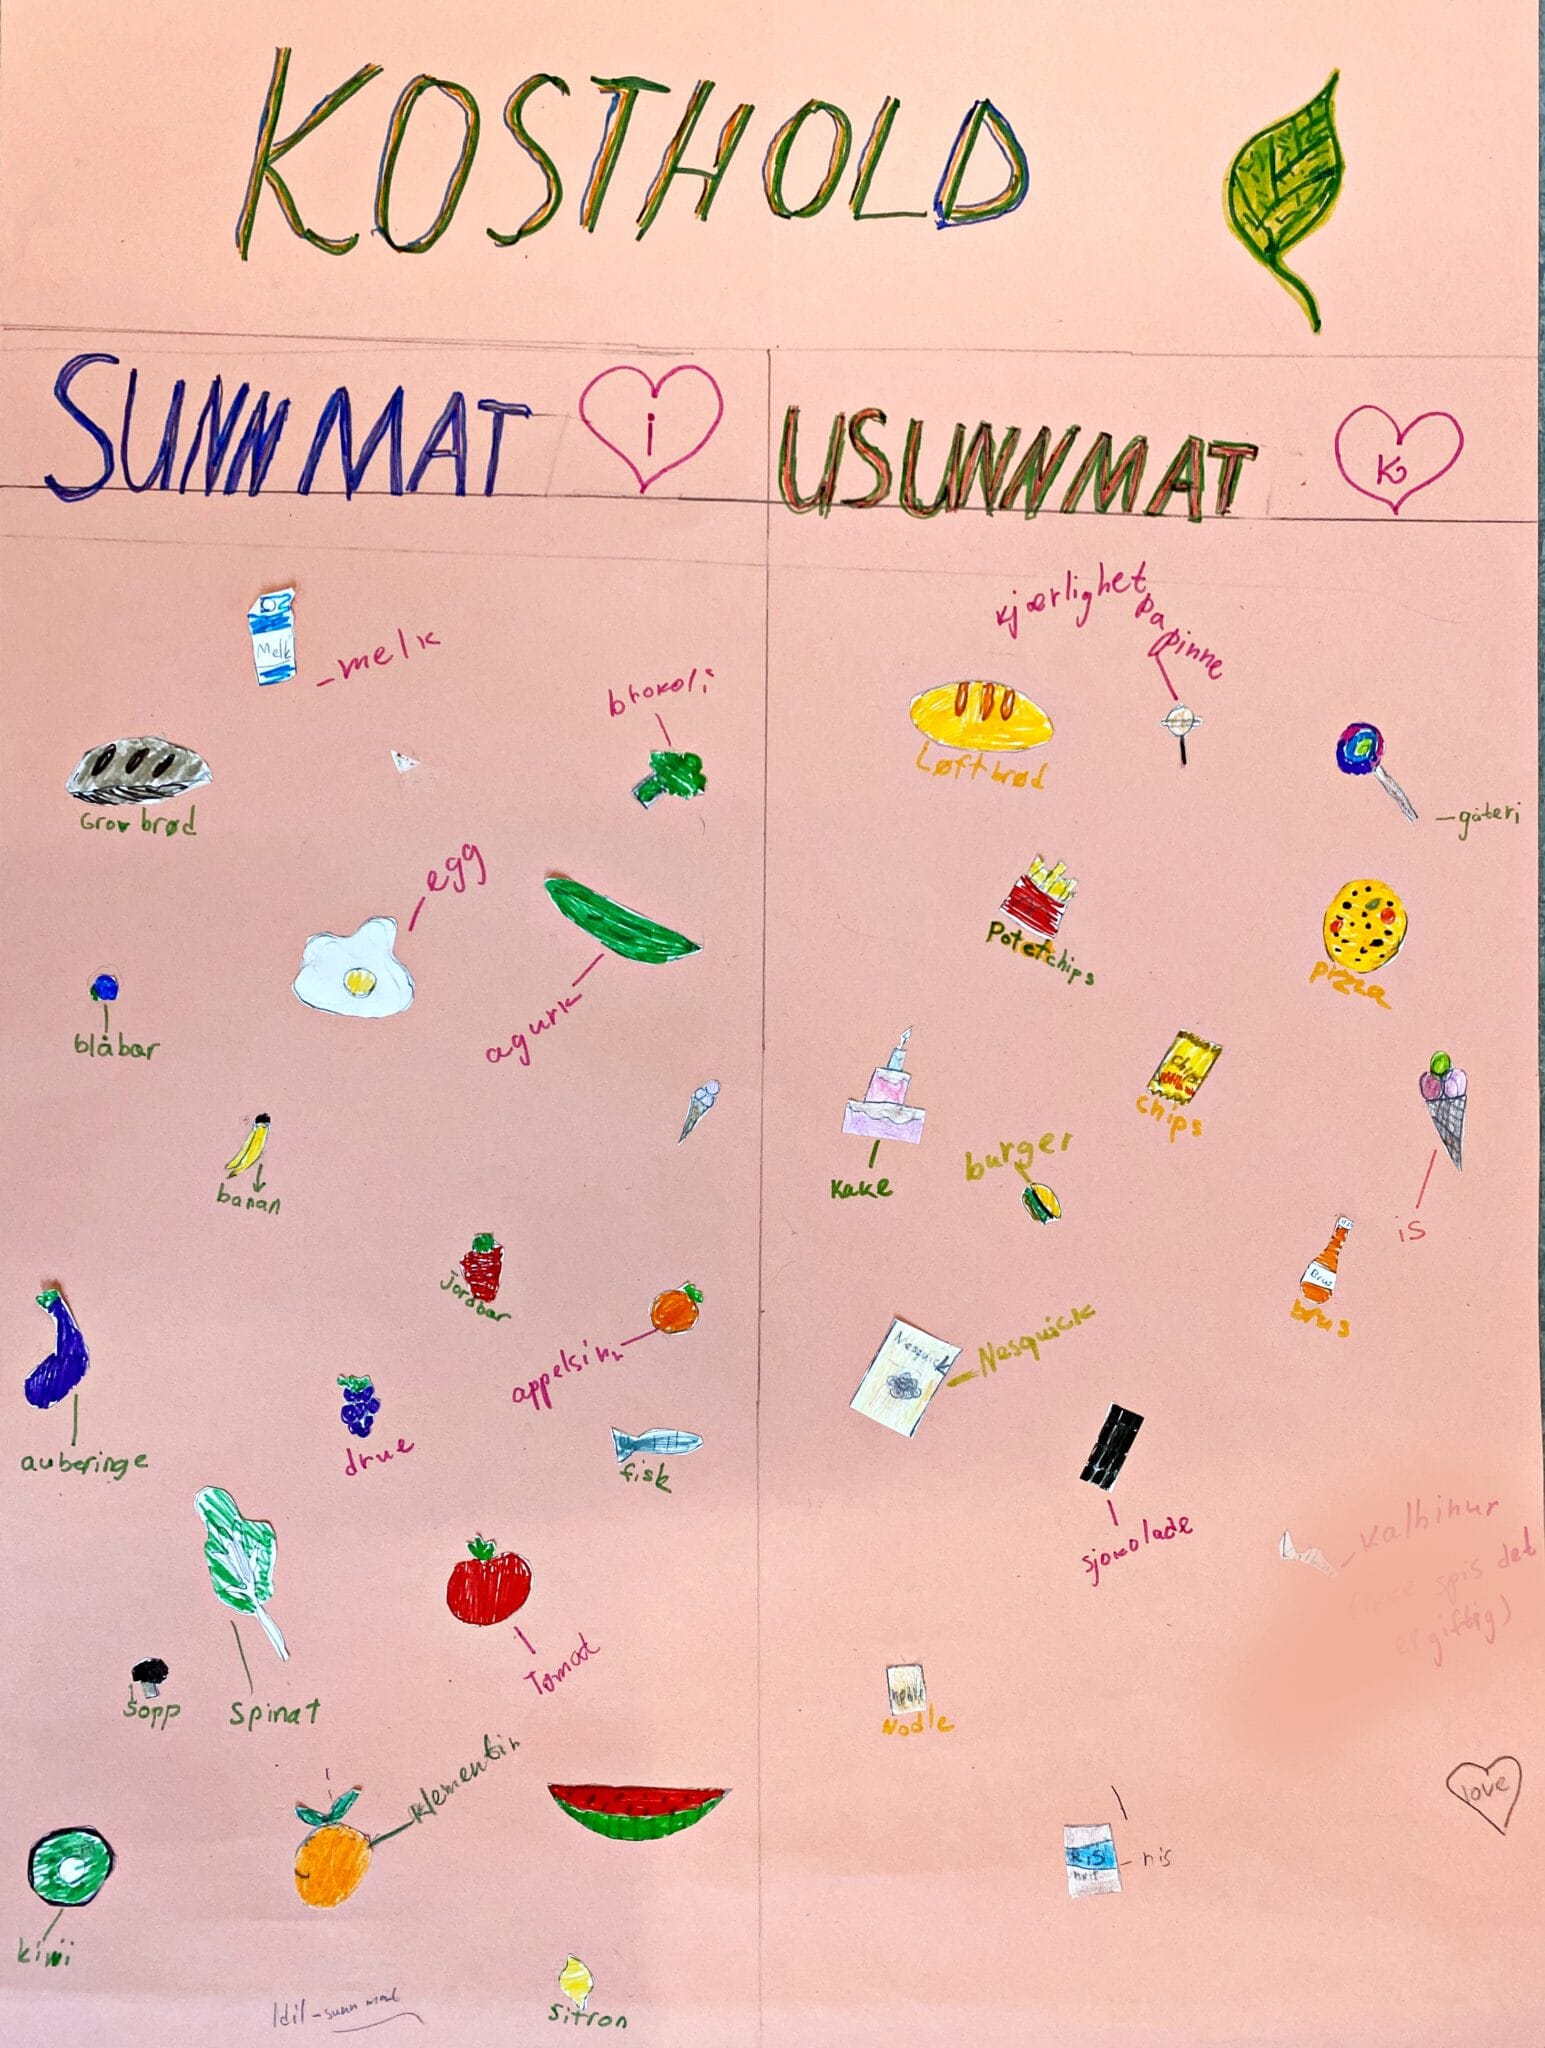 KOSTHOLD
SUNN MAT
i
USUNN MAT
K
Melk
melk
brokoli
Grov brød
egg
agurk
blåbær
banan
jordbær
appelsinn
auberinge
drue
fisk
Tomat
sopp
spinat
klementin
kiwi
sitron
Idil - sunn mat
kjærlighet
på pinne
Løftbrød
gåteri
Potetchips
pizza
chips
chips
kake
burger
is
Brus
brus
Nesquick
Nesquick
sjokolade
spis det
er giftig)
Nodle
love
RiS
hvit
ris